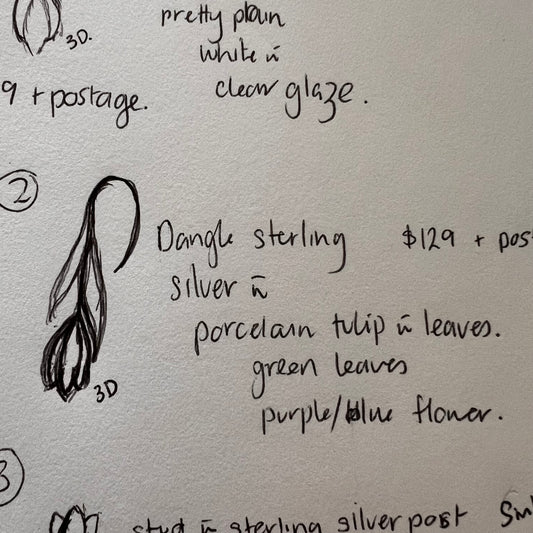 pretty plain
3D.
white w̄
clear glaze.
9 + postage.
2
Dangle sterling $129 + pos
silver w̄
porcelain tulip w̄ leaves.
3D
green leaves
purple/blue flower.
3
stud w̄ sterling silver post